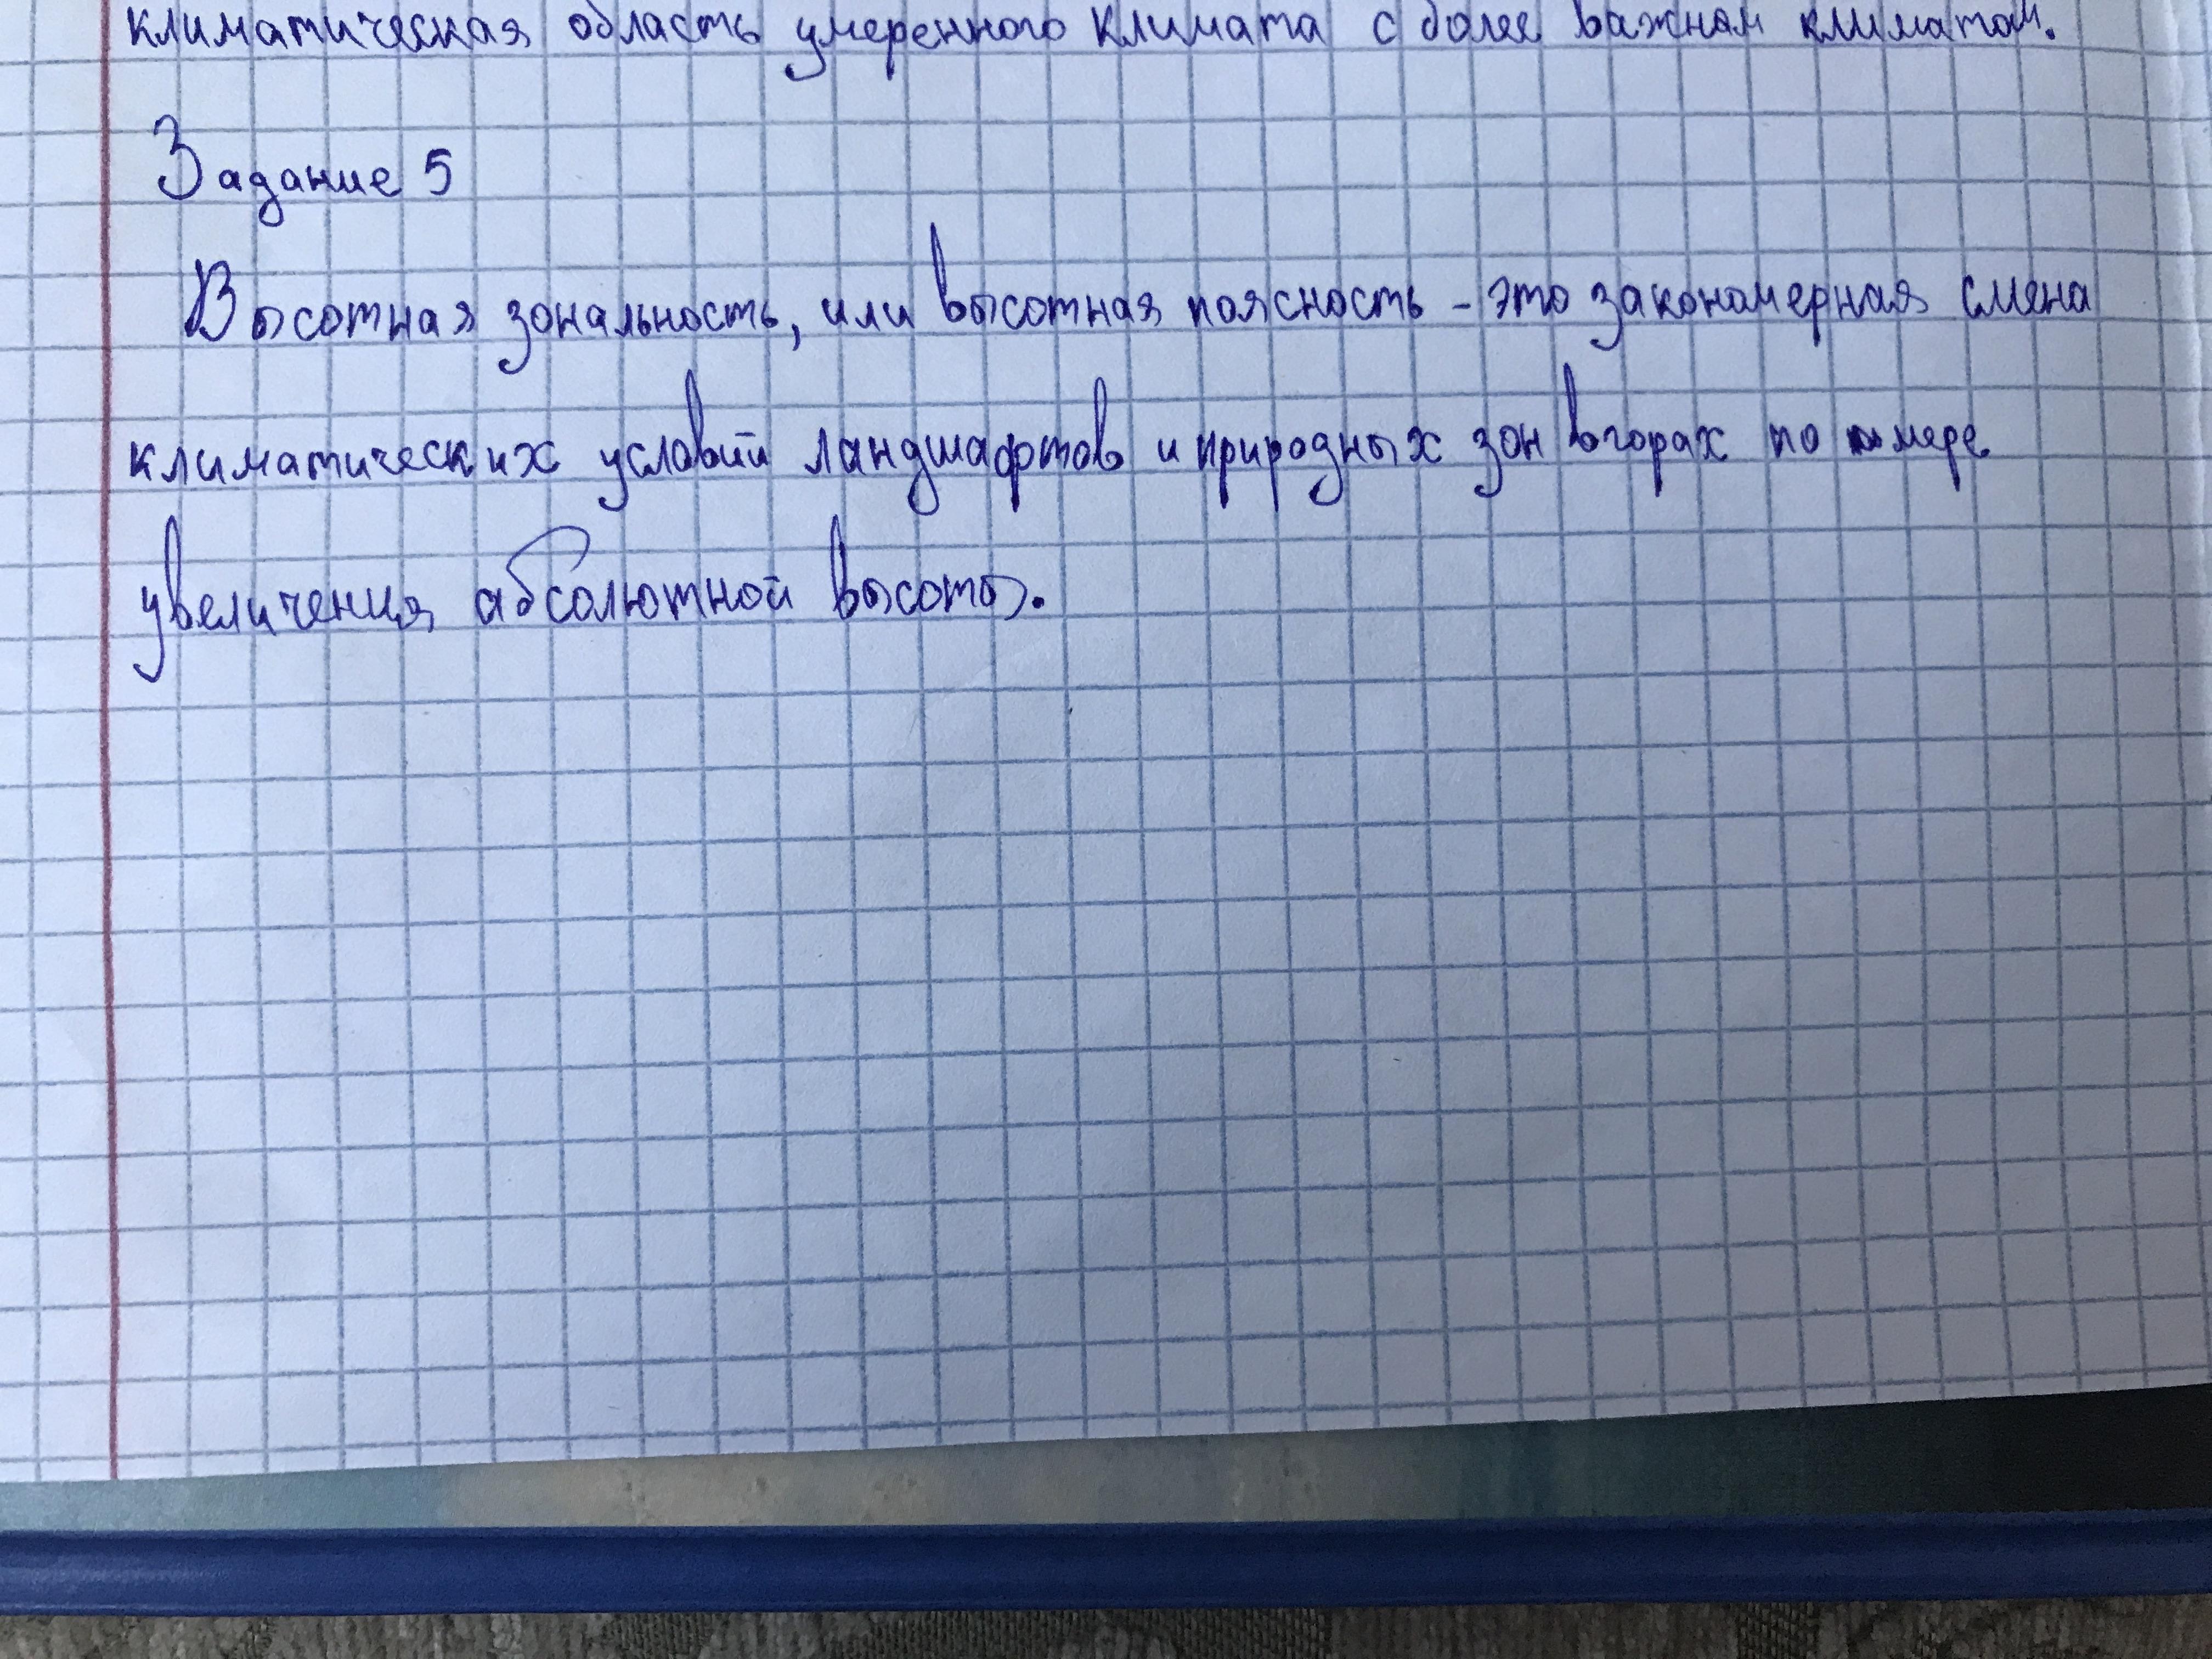 климатическая область умеренного климата с более важном климатом.
Задание 5
Высотная зональность, или высотная поясность - это закономерная смена
климатических условий ландшафтов и природных зон в горах по мере
увеличения абсолютной высоты.